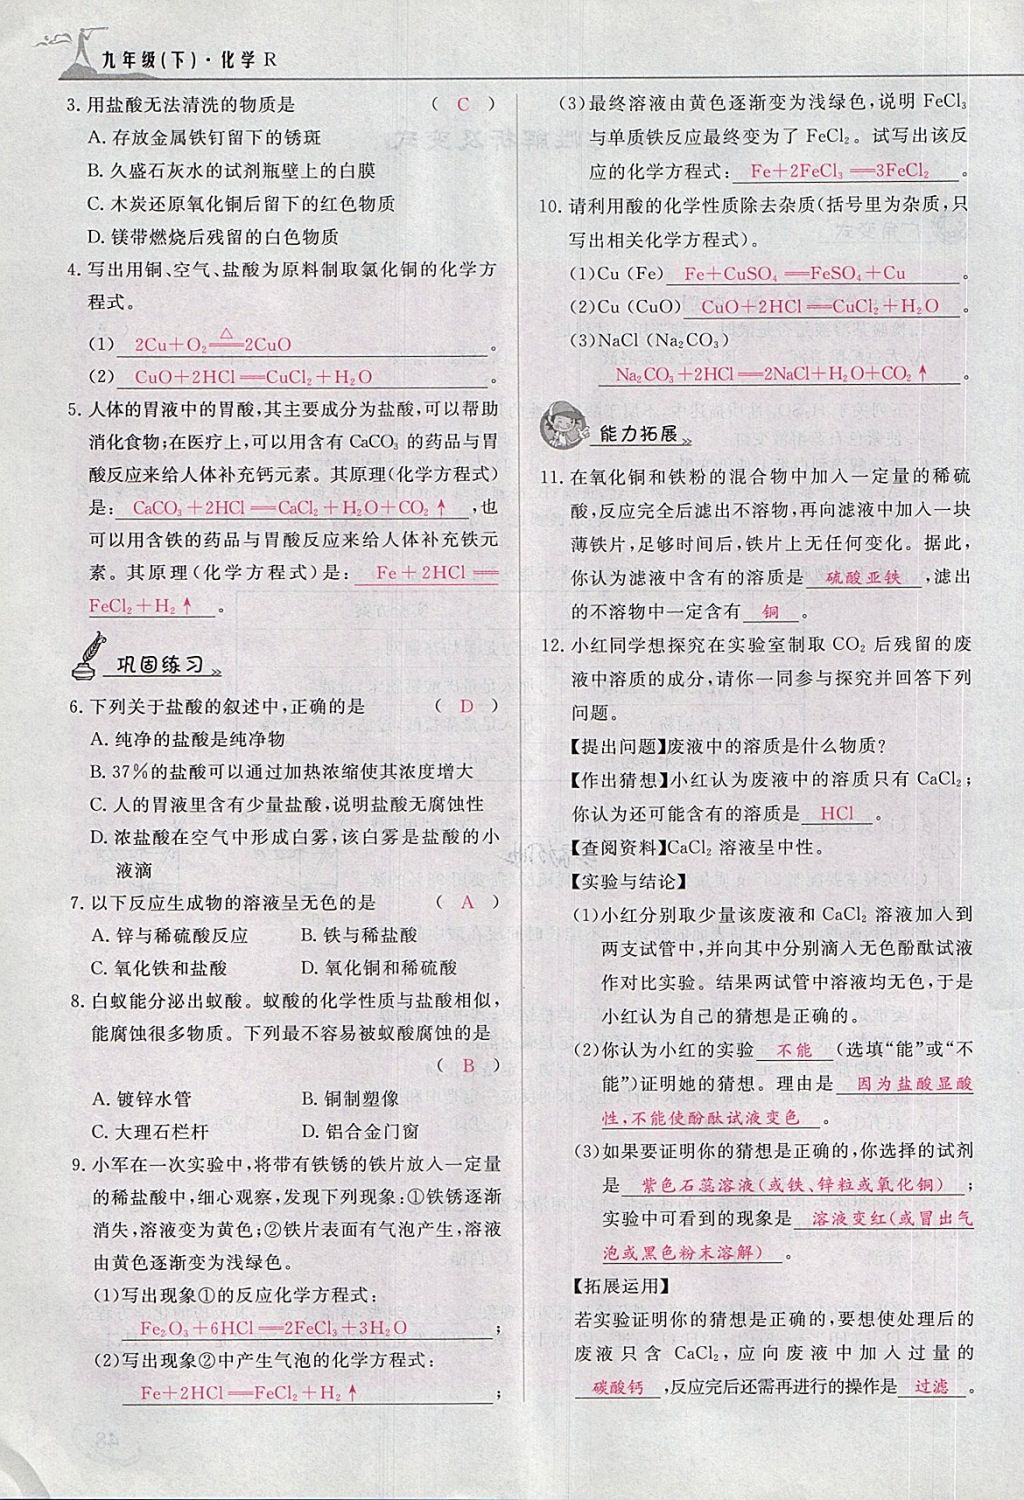 九年级(下)·化学 R
3. 用盐酸无法清洗的物质是 ( C )
A. 存放金属铁钉留下的锈斑
B. 久盛石灰水的试剂瓶壁上的白膜
C. 木炭还原氧化铜后留下的红色物质
D. 镁带燃烧后残留的白色物质
4. 写出用铜、空气、盐酸为原料制取氯化铜的化学方
程式。
(1) 2Cu+O₂ ══△══ 2CuO 。
(2) CuO+2HCl══CuCl₂+H₂O 。
5. 人体的胃液中的胃酸,其主要成分为盐酸,可以帮助
消化食物;在医疗上,可以用含有 CaCO₃ 的药品与胃
酸反应来给人体补充钙元素。其原理(化学方程式)
是: CaCO₃+2HCl══CaCl₂+H₂O+CO₂↑ ,也
可以用含铁的药品与胃酸反应来给人体补充铁元
素。其原理(化学方程式)是: Fe+2HCl══
FeCl₂+H₂↑ 。
巩固练习
6. 下列关于盐酸的叙述中,正确的是 ( D )
A. 纯净的盐酸是纯净物
B. 37%的盐酸可以通过加热浓缩使其浓度增大
C. 人的胃液里含有少量盐酸,说明盐酸无腐蚀性
D. 浓盐酸在空气中形成白雾,该白雾是盐酸的小
液滴
7. 以下反应生成物的溶液呈无色的是 ( A )
A. 锌与稀硫酸反应 B. 铁与稀盐酸
C. 氧化铁和盐酸 D. 氧化铜和稀硫酸
8. 白蚁能分泌出蚁酸。蚁酸的化学性质与盐酸相似,
能腐蚀很多物质。下列最不容易被蚁酸腐蚀的是
( B )
A. 镀锌水管 B. 铜制塑像
C. 大理石栏杆 D. 铝合金门窗
9. 小军在一次实验中,将带有铁锈的铁片放入一定量
的稀盐酸中,细心观察,发现下列现象:①铁锈逐渐
消失,溶液变为黄色;②铁片表面有气泡产生,溶液
由黄色逐渐变为浅绿色。
(1)写出现象①的反应化学方程式:
Fe₂O₃+6HCl══2FeCl₃+3H₂O ;
(2)写出现象②中产生气泡的化学方程式:
Fe+2HCl══FeCl₂+H₂↑ ;
(3)最终溶液由黄色逐渐变为浅绿色,说明 FeCl₃
与单质铁反应最终变为了 FeCl₂。试写出该反
应的化学方程式: Fe+2FeCl₃══3FeCl₂ 。
10. 请利用酸的化学性质除去杂质(括号里为杂质,只
写出相关化学方程式)。
(1)Cu(Fe) Fe+CuSO₄══FeSO₄+Cu 。
(2)Cu(CuO) CuO+2HCl══CuCl₂+H₂O 。
(3)NaCl(Na₂CO₃)
Na₂CO₃+2HCl══2NaCl+H₂O+CO₂↑ 。
能力拓展
11. 在氧化铜和铁粉的混合物中加入一定量的稀硫
酸,反应完全后滤出不溶物,再向滤液中加入一块
薄铁片,足够时间后,铁片上无任何变化。据此,
你认为滤液中含有的溶质是 硫酸亚铁 ,滤出
的不溶物中一定含有 铜 。
12. 小红同学想探究在实验室制取 CO₂ 后残留的废
液中溶质的成分,请你一同参与探究并回答下列
问题。
【提出问题】废液中的溶质是什么物质?
【作出猜想】小红认为废液中的溶质只有 CaCl₂;
你认为还可能含有的溶质是 HCl 。
【查阅资料】CaCl₂ 溶液呈中性。
【实验与结论】
(1)小红分别取少量该废液和 CaCl₂ 溶液加入到
两支试管中,并向其中分别滴入无色酚酞试液
作对比实验。结果两试管中溶液均无色,于是
小红认为自己的猜想是正确的。
(2)你认为小红的实验 不能 (选填“能”或“不
能”)证明她的猜想。理由是 因为盐酸显酸
性,不能使酚酞试液变色 。
(3)如果要证明你的猜想是正确的,你选择的试剂
是 紫色石蕊溶液(或铁、锌粒或氧化铜) ;
实验中可看到的现象是 溶液变红(或冒出气
泡或黑色粉末溶解) 。
【拓展运用】
若实验证明你的猜想是正确的,要想使处理后的
废液只含 CaCl₂,应向废液中加入过量的
碳酸钙 ,反应完后还需再进行的操作是 过滤 。
48